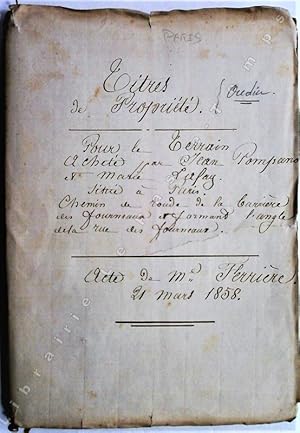 PARIS
Titres
de Propriété.
Ordier
Pour le Terrain
Acheté par Jean Pompano
et Marie Lafay.
Situé à Paris.
Chemin de Ronde de la Barrière
des Fourneaux et formant l'angle
de la rue des Fourneaux.
Acte de Me Ferrière.
21 mars 1858.
librairie